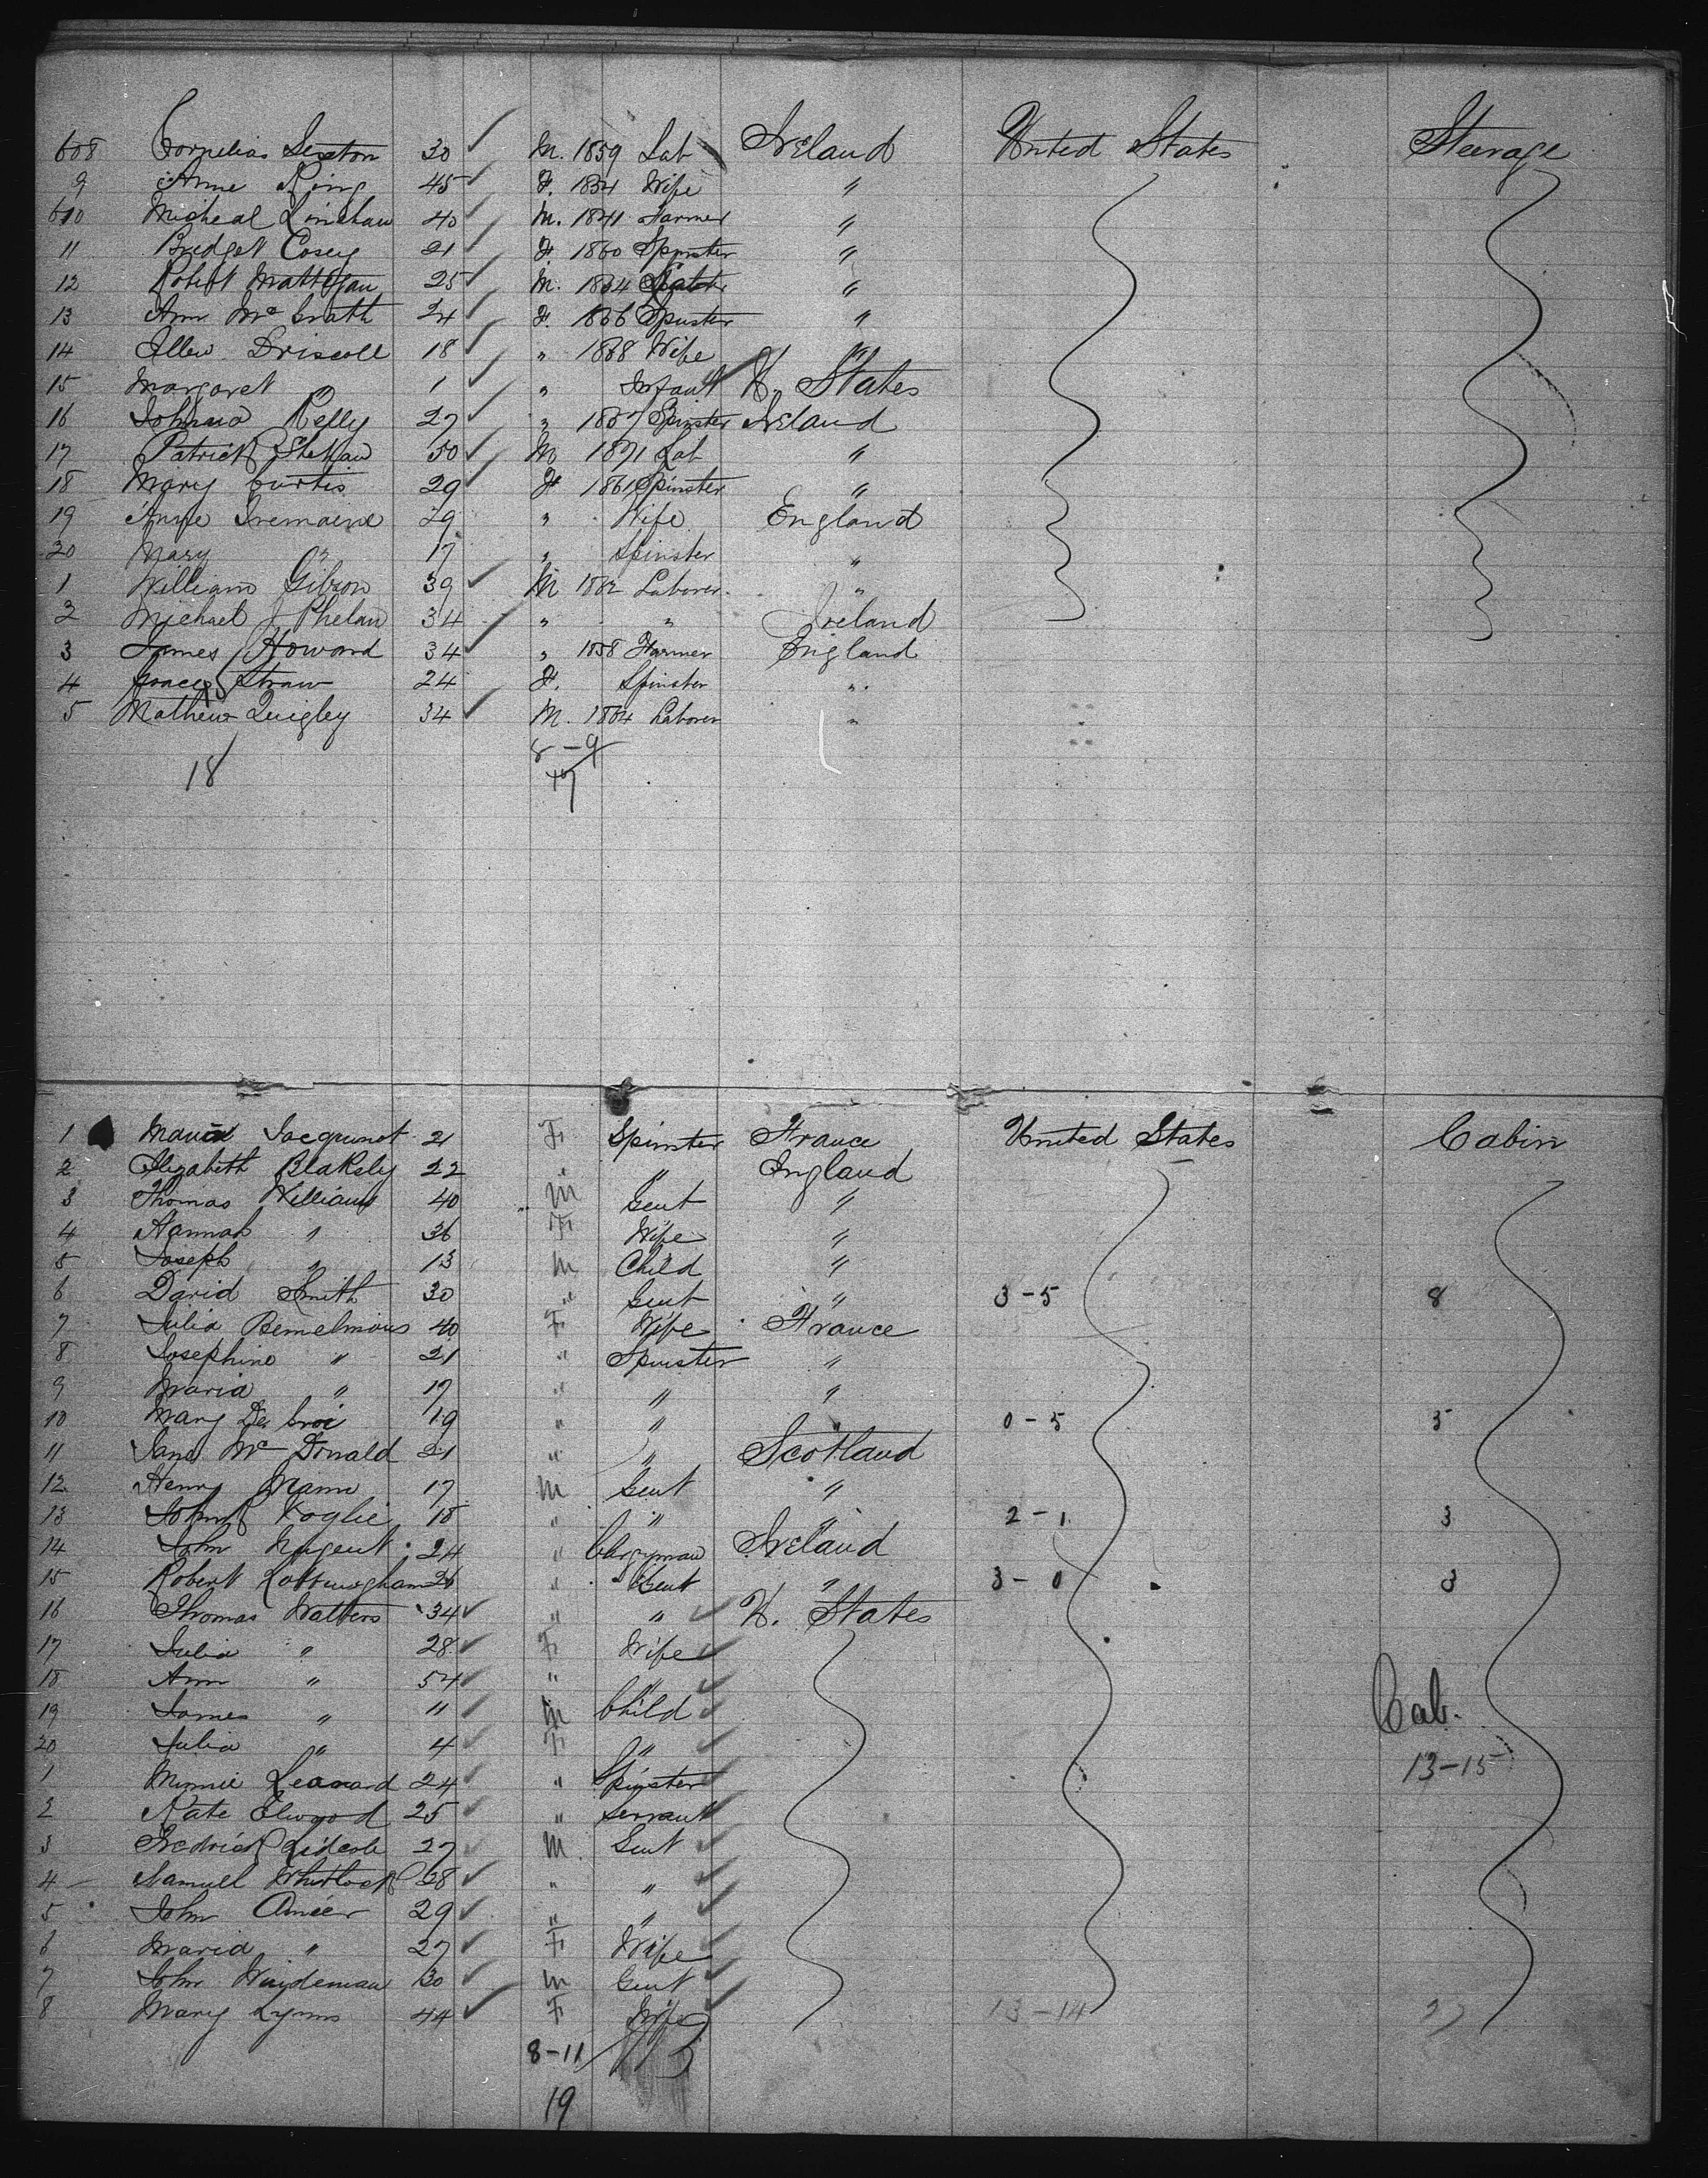 608 Cornelias Sexton 30 ✓ M. 1859 Lab Ireland United States Steerage
9 Anne King 45 ✓ F. 1834 Wife "
610 Micheal 40 ✓ M. 1841 Farmer "
11 Bridget Casey 21 ✓ F. 1860 Spinster "
12 Robert 25 ✓ M. "
13 Ann McGrath 24 ✓ F. 1866 Spinster "
14 Ellen Driscoll 18 ✓ " 1868 Wife "
15 Margaret " 1 ✓ " Infant U. States
16 Kelly 27 ✓ " 1857 Spinster Ireland
17 Patrick 50 ✓ M 1871 Lab "
18 Mary Curtis 29 ✓ F 1861 Spinster "
19 Annie 29 " Wife England
20 Mary " 17 " Spinster "
1 William Gibson 39 ✓ M 1882 Laborer "
2 Michael J Phelan 34 " " Ireland
3 James Howard 34 ✓ " 1858 Farmer England
4 Straw 24 F. Spinster "
5 Mathew Quigley 34 ✓ M. 1864 Laborer "
8-9
18 17
1 21 F Spinster France United States Cabin
2 Elizabeth Blaksly 22 " England
3 Thomas Williams 40 M Gent "
4 Hannah " 36 F Wife "
5 Joseph " 13 M Child "
6 David Smith 30 " Gent " 3-5 8
7 Julia Bemelmans 40 F Wife France
8 Josephine " 21 " Spinster "
9 Maria " 17 " " "
10 Mary 19 " " " 0-5 5
11 Jane McDonald 21 " " Scotland
12 Henry Mann 17 M Gent "
13 John 18 " " " 2-1 3
14 John Nugent 24 " Clergyman Ireland
15 Robert Cottingham 26 " Gent " 3-0 3
16 Thomas Walters 34 ✓ " " ✓ U. States
17 Julia " 28 ✓ F Wife ✓
18 Ann " 54 ✓ " " ✓
19 James " 11 ✓ M Child ✓ Cab.
20 Julia " 4 ✓ F " ✓
1 Minnie Leonard 24 ✓ " Spinster ✓ 13-15
2 Kate Elwood 25 ✓ " Servant ✓
3 Fredrick 27 ✓ M Gent ✓
4 Samuel Whitlock 28 ✓ " " ✓
5 John 29 ✓ " " ✓
6 Maria " 27 ✓ F Wife ✓
7 John 30 ✓ M Gent ✓
8 Mary Lynns 44 ✓ F Wife ✓ 13-14 27
8-11
19